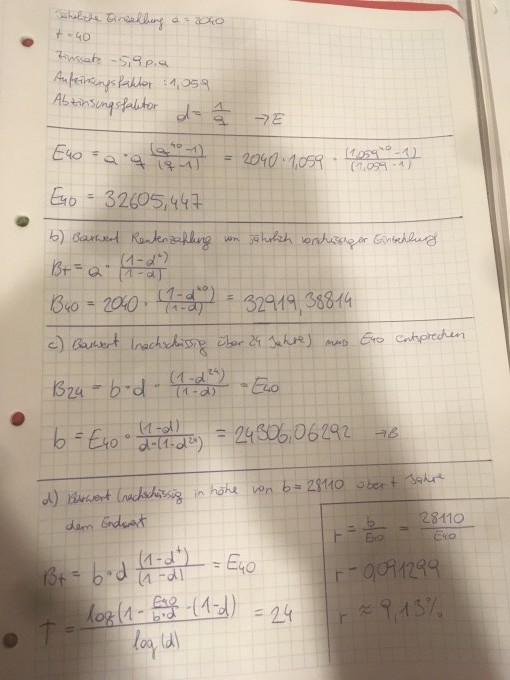 Jährliche Einzahlung a = 2040
t = 40
Zinssatz - 5,9 p.a
Aufzinsungsfaktor : 1,059
Abzinsungsfaktor d = 1/q → E
E40 = a · q (q^40 - 1)/(q - 1) = 2040 · 1,059 · (1,059^40 - 1)/(1,059 - 1)
E40 = 32605,447
b) Barwert Rentenzahlung von jährlich vorschüssiger Einzahlung
Bt = a · (1-d^t)/(1-d)
B40 = 2040 · (1-d^40)/(1-d) = 32919,38814
c) Barwert (nachschüssig über 24 Jahre) muss E40 entsprechen
B24 = b · d · (1-d^24)/(1-d) = E40
b = E40 · (1-d)/(d·(1-d^24)) = 24306,06292 → B
d) Barwert (nachschüssig in höhe von b = 28110 über t Jahre
dem Endwert
Bt = b · d (1-d^t)/(1-d) = E40
T = log(1 - E40/(b·d) · (1-d))/log(d) = 24
r = b/E40 = 28110/E40
r = 0,091299
r ≈ 9,13%